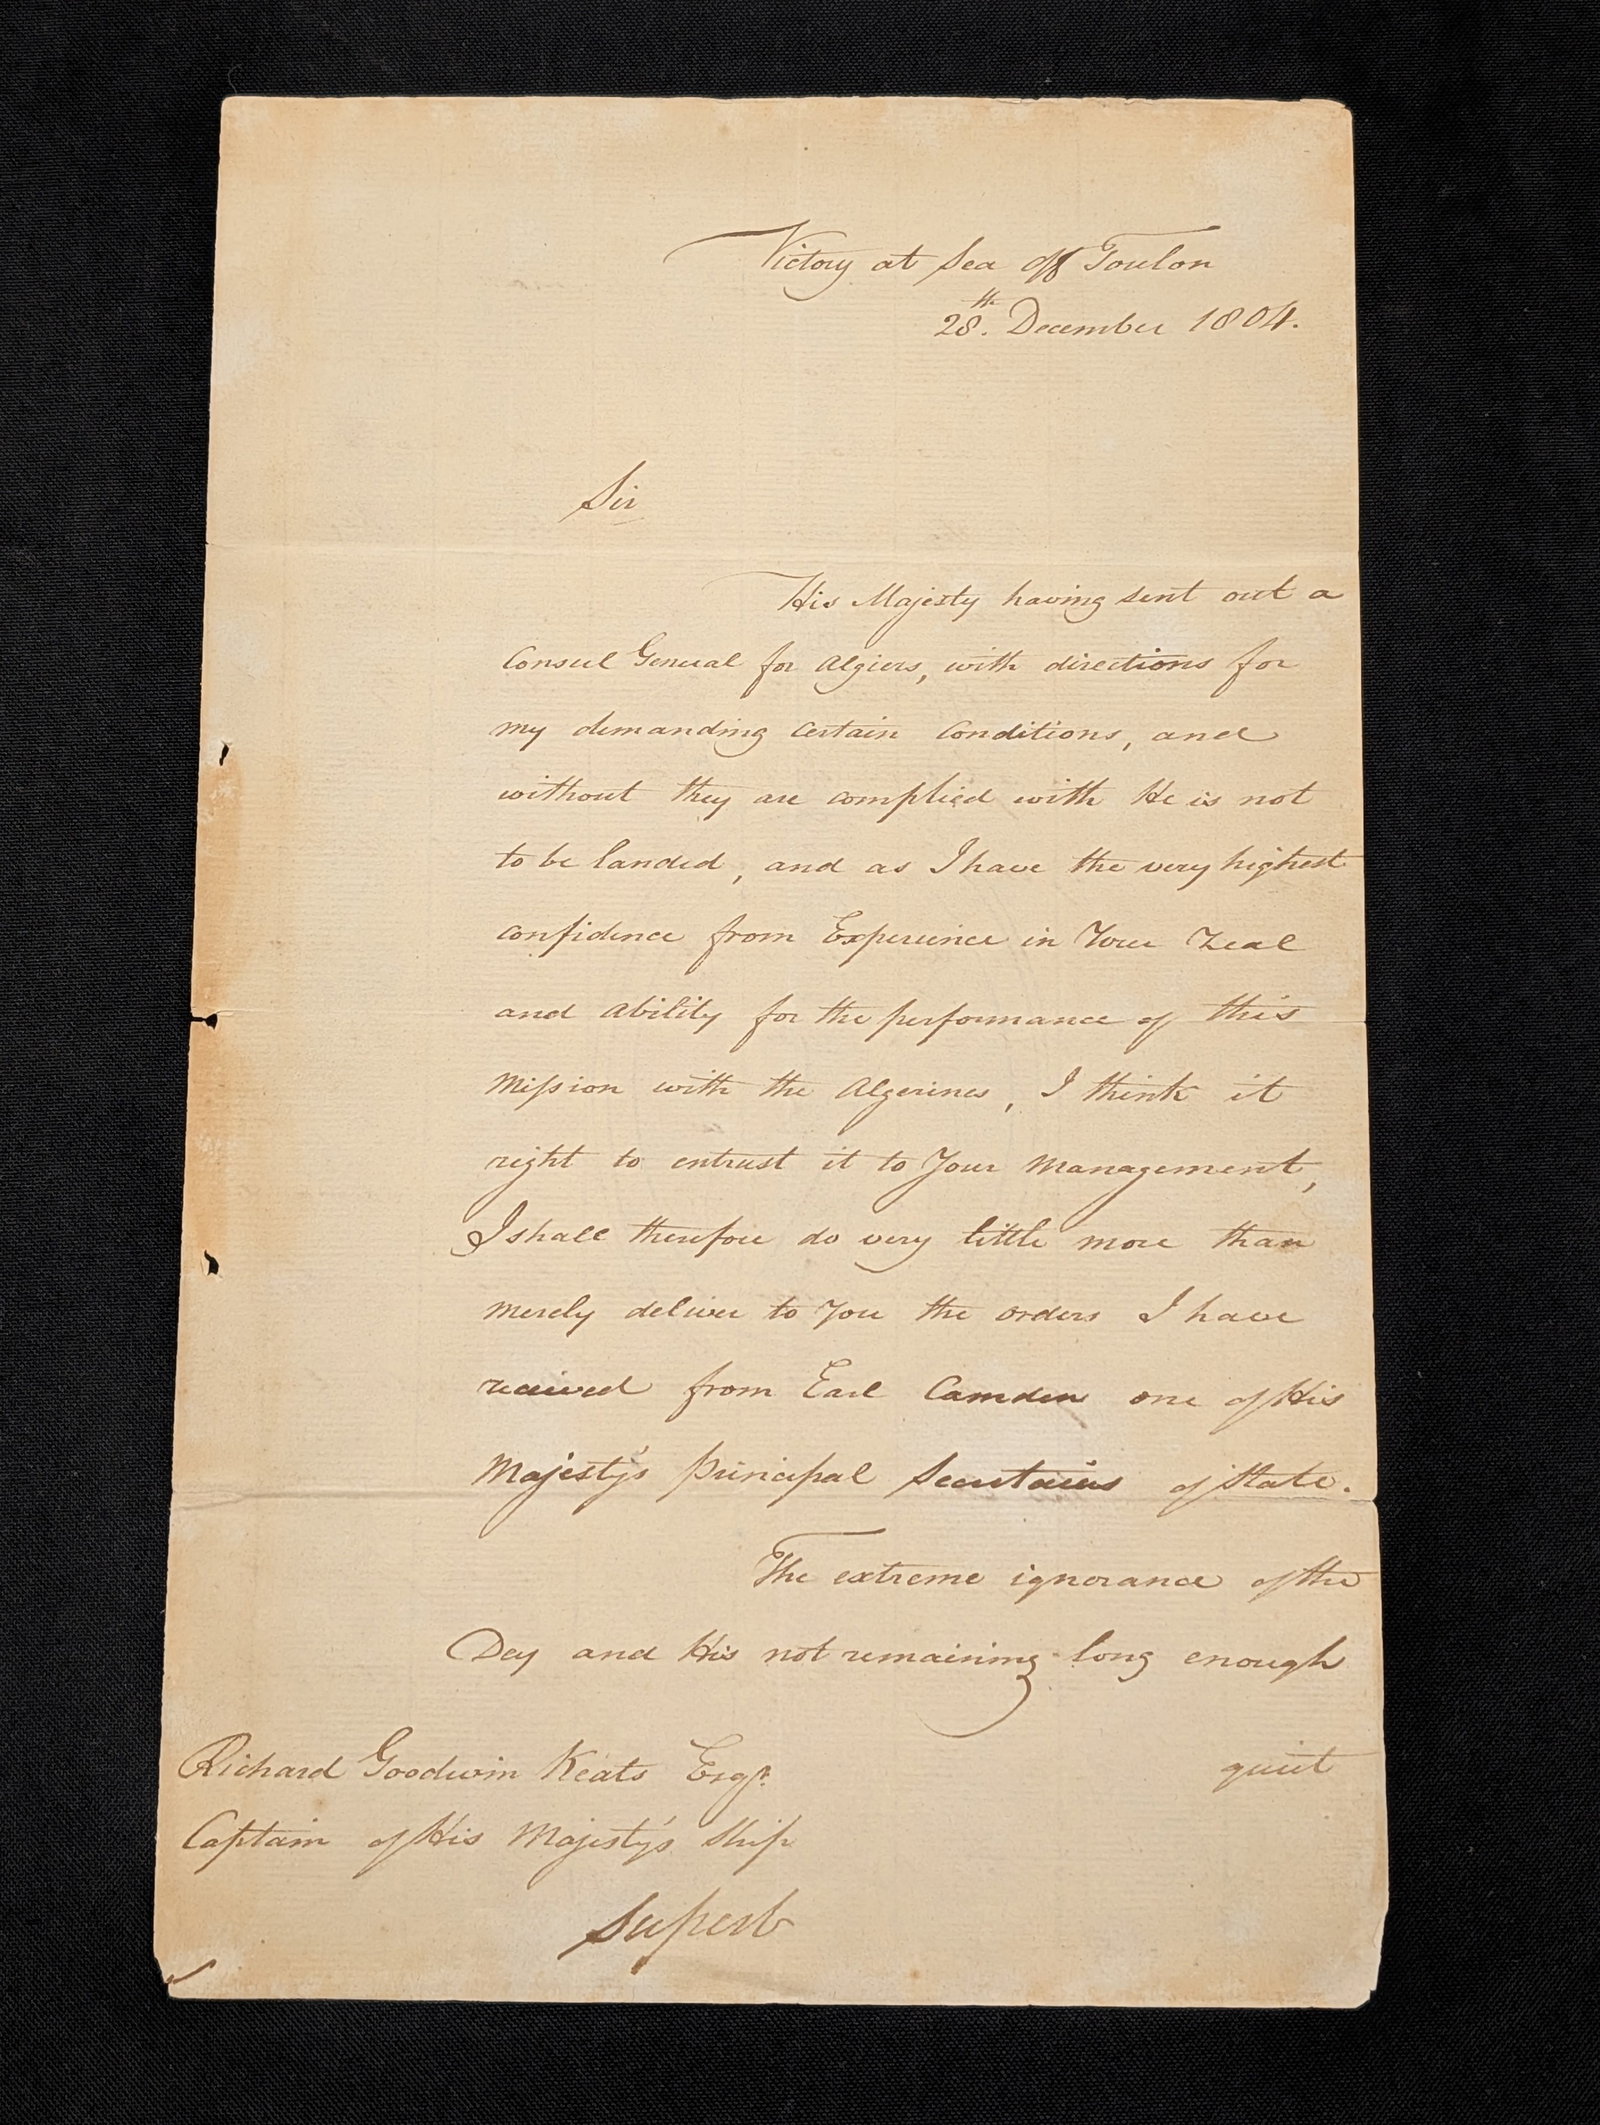 Victory at Sea off Toulon
28.th December 1804.
Sir
His Majesty having sent out a
Consul General for Algiers, with directions for
my demanding certain conditions, and
without they are complied with He is not
to be landed, and as I have the very highest
confidence from Experience in Your Zeal
and ability for the performance of this
Mission with the Algerines, I think it
right to entrust it to Your Management,
I shall therefore do very little more than
merely deliver to You the orders I have
received from Earl Camden one of His
Majesty's Principal Secretaries of State.
The extreme ignorance of the
Dey and His not remaining long enough
quiet
Richard Goodwin Keats Esqr.
Captain of His Majesty's Ship
Superb